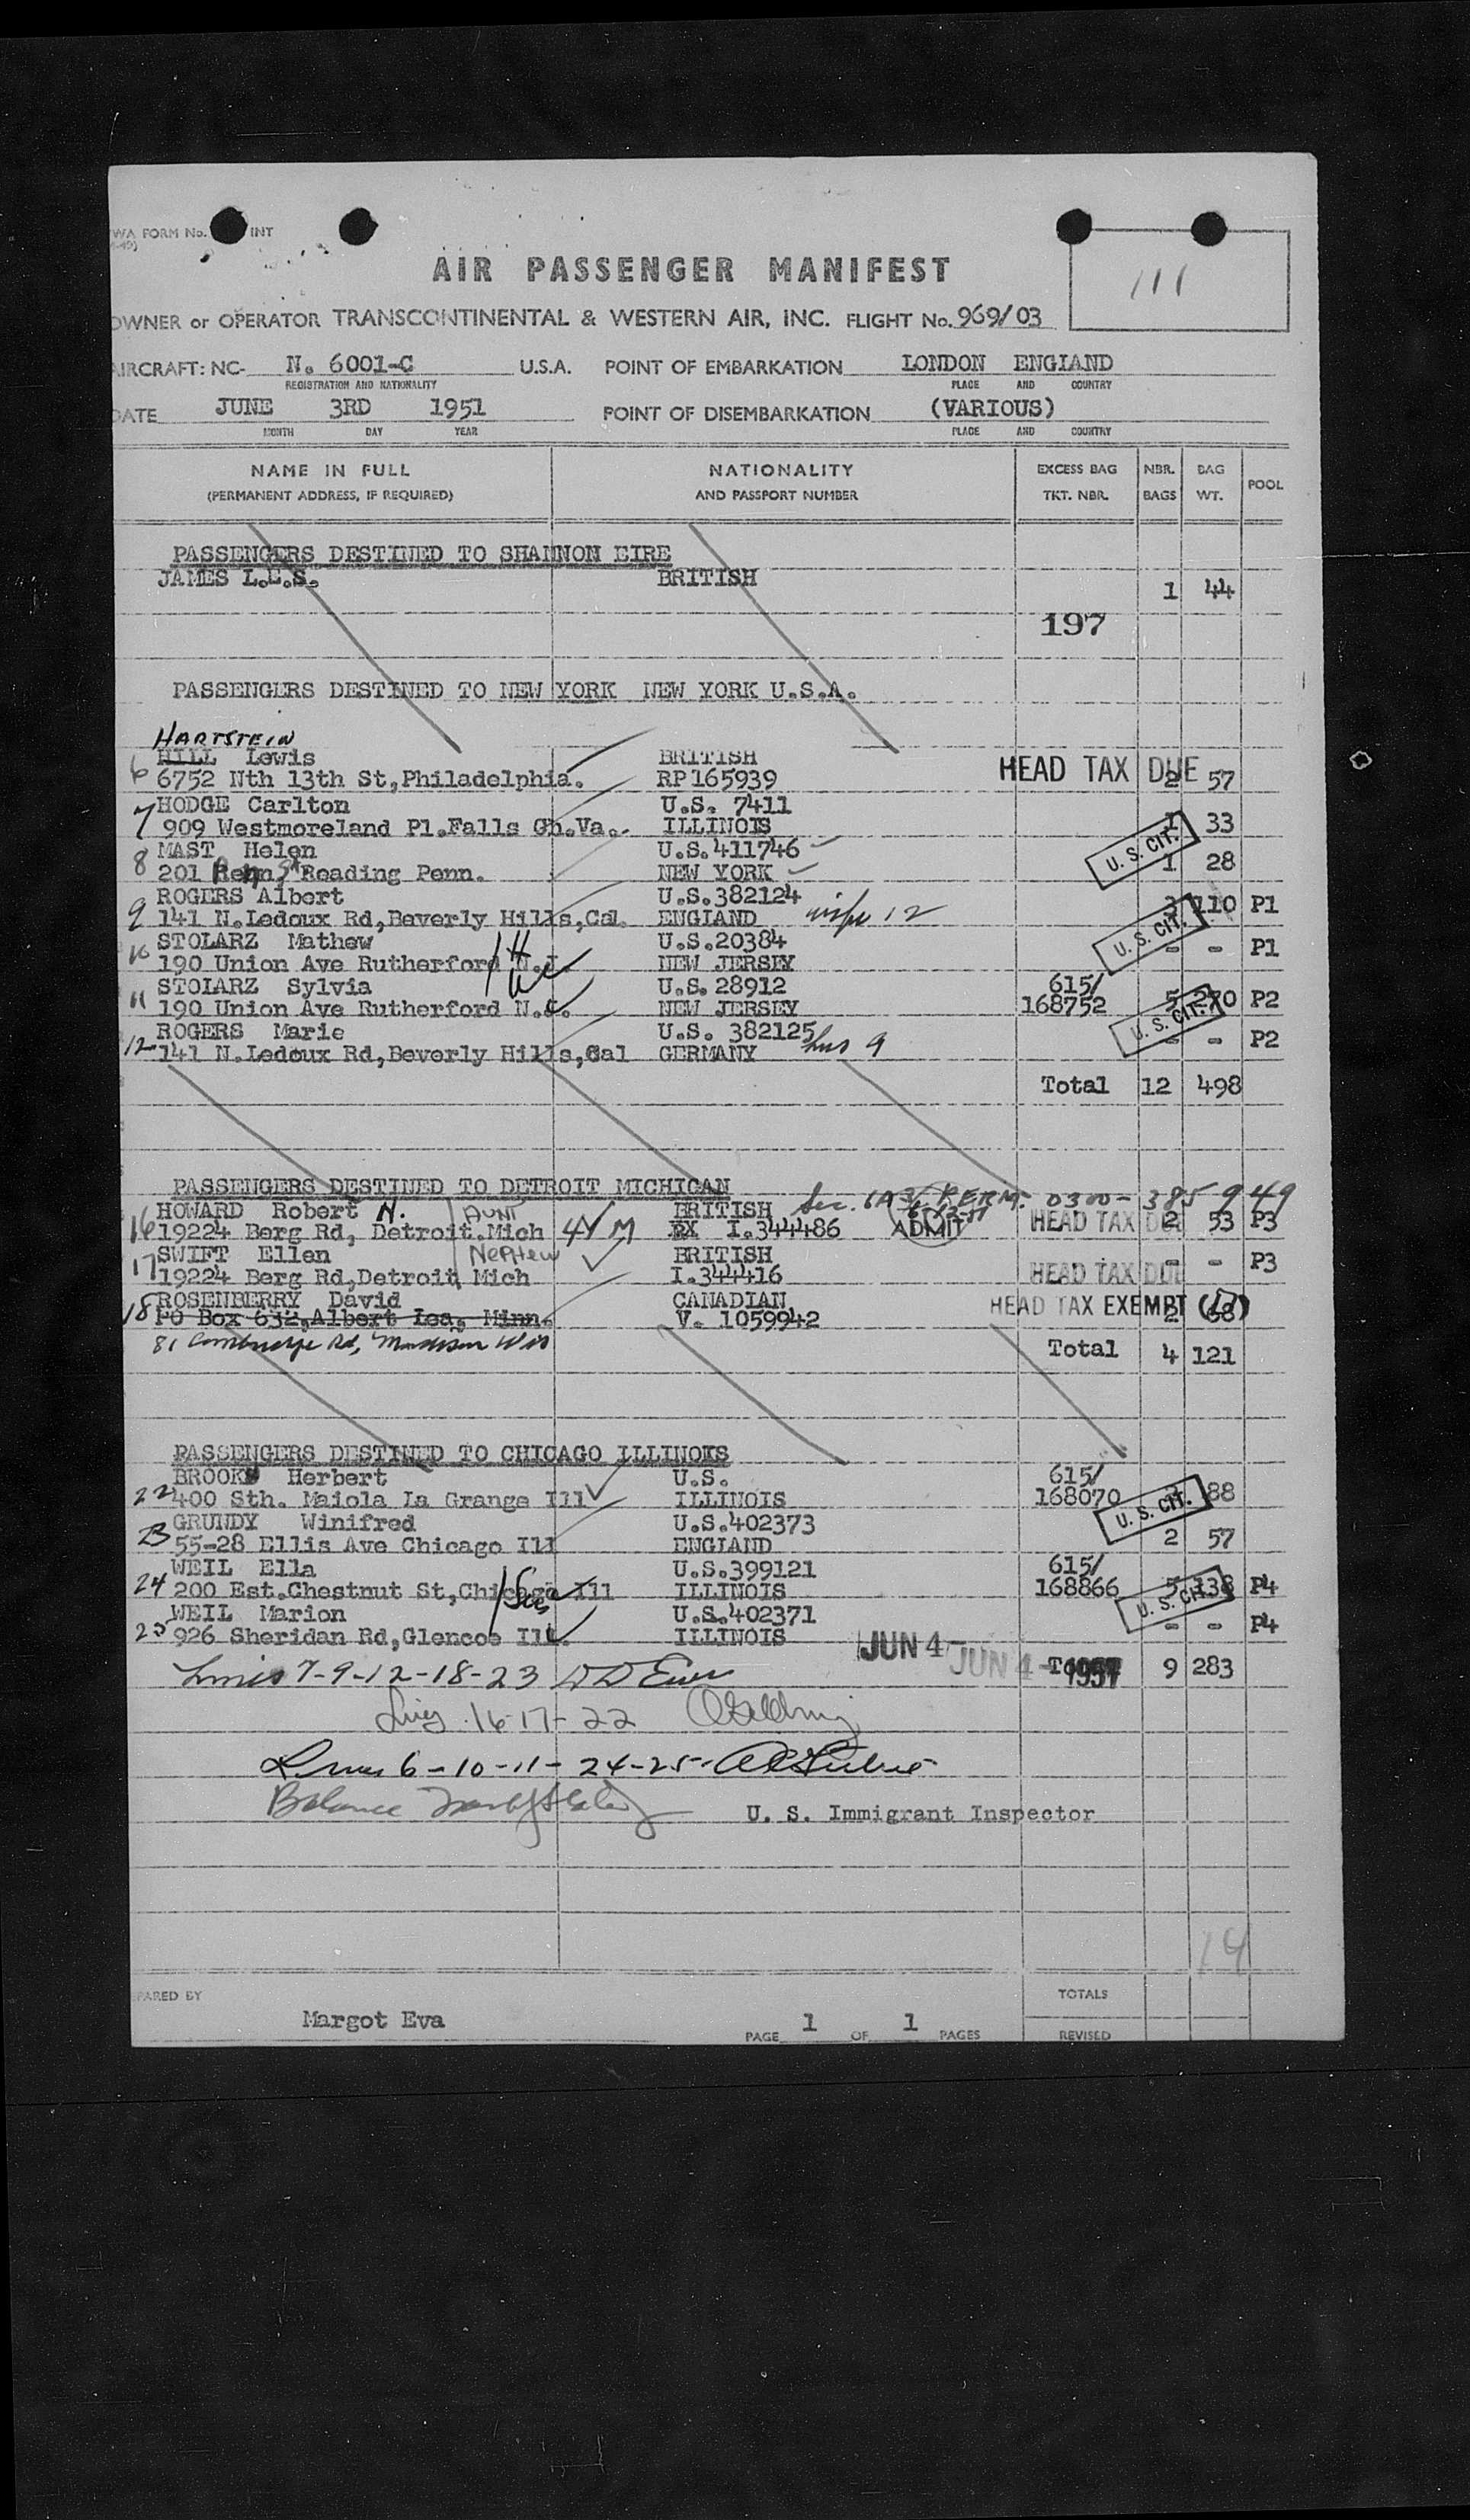 WA FORM No. INT
AIR PASSENGER MANIFEST
111
OWNER or OPERATOR TRANSCONTINENTAL & WESTERN AIR, INC. FLIGHT No. 969/03
AIRCRAFT: NC- N. 6001-C U.S.A. POINT OF EMBARKATION LONDON ENGLAND
REGISTRATION AND NATIONALITY PLACE AND COUNTRY
DATE JUNE 3RD 1951 POINT OF DISEMBARKATION (VARIOUS)
MONTH DAY YEAR PLACE AND COUNTRY
NAME IN FULL NATIONALITY EXCESS BAG NBR. BAG
(PERMANENT ADDRESS, IF REQUIRED) AND PASSPORT NUMBER TKT. NBR. BAGS WT. POOL
PASSENGERS DESTINED TO SHANNON EIRE
JAMES L.E.S. BRITISH 1 44
197
PASSENGERS DESTINED TO NEW YORK NEW YORK U.S.A.
HARTSTEIN
HILL Lewis BRITISH
6 6752 Nth 13th St,Philadelphia. RP165939 HEAD TAX DUE 2 57
HODGE Carlton U.S. 7411
7 909 Westmoreland Pl.Falls Ch.Va. ILLINOIS 1 33
MAST Helen U.S.411746 U. S. CIT.
8 201 Penn St Reading Penn. NEW YORK 1 28
ROGERS Albert U.S.382124
9 141 N.Ledoux Rd,Beverly Hills,Cal. ENGLAND wife 12 3 110 P1
STOLARZ Mathew U.S.20384 U. S. CIT.
10 190 Union Ave Rutherford N.J. NEW JERSEY - - P1
STOLARZ Sylvia U.S.28912 615/
11 190 Union Ave Rutherford N.J. NEW JERSEY 168752 5 270 P2
ROGERS Marie U.S. 382125 U. S. CIT.
12 141 N.Ledoux Rd,Beverly Hills,Cal GERMANY hus 9 - - P2
Total 12 498
PASSENGERS DESTINED TO DETROIT MICHIGAN
HOWARD Robert N. AUNT BRITISH Sec. PERM. 0300-385949
16 19224 Berg Rd, Detroit.Mich 4Y M PX I.344486 ADMIT HEAD TAX DUE 2 53 P3
SWIFT Ellen Nephew BRITISH
17 19224 Berg Rd,Detroit Mich I.344416 HEAD TAX DUE - - P3
ROSENBERRY David CANADIAN HEAD TAX EXEMPT
18 PO Box 632,Albert Lea, Minn. V. 1059942 2 68
81 Rd, Madison Wis Total 4 121
PASSENGERS DESTINED TO CHICAGO ILLINOIS
BROOKS Herbert U.S. 615/
22 400 Sth. Maiola La Grange Ill ILLINOIS 168070 88
GRUNDY Winifred U.S.402373 U. S. CIT.
23 55-28 Ellis Ave Chicago Ill ENGLAND 2 57
WEIL Ella U.S.399121 615/
24 200 Est.Chestnut St,Chicago Ill ILLINOIS 168866 5 138 P4
WEIL Marion U.S.402371 U. S. CIT.
25 926 Sheridan Rd,Glencoe Ill. ILLINOIS - - P4
JUN 4 JUN 4 - 1951
Lines 7-9-12-18-23 Total 9 283
Lines 16-17-22
Lines 6-10-11-24-25-
Balance
U. S. Immigrant Inspector
14
PREPARED BY TOTALS
Margot Eva
PAGE 1 OF 1 PAGES REVISED